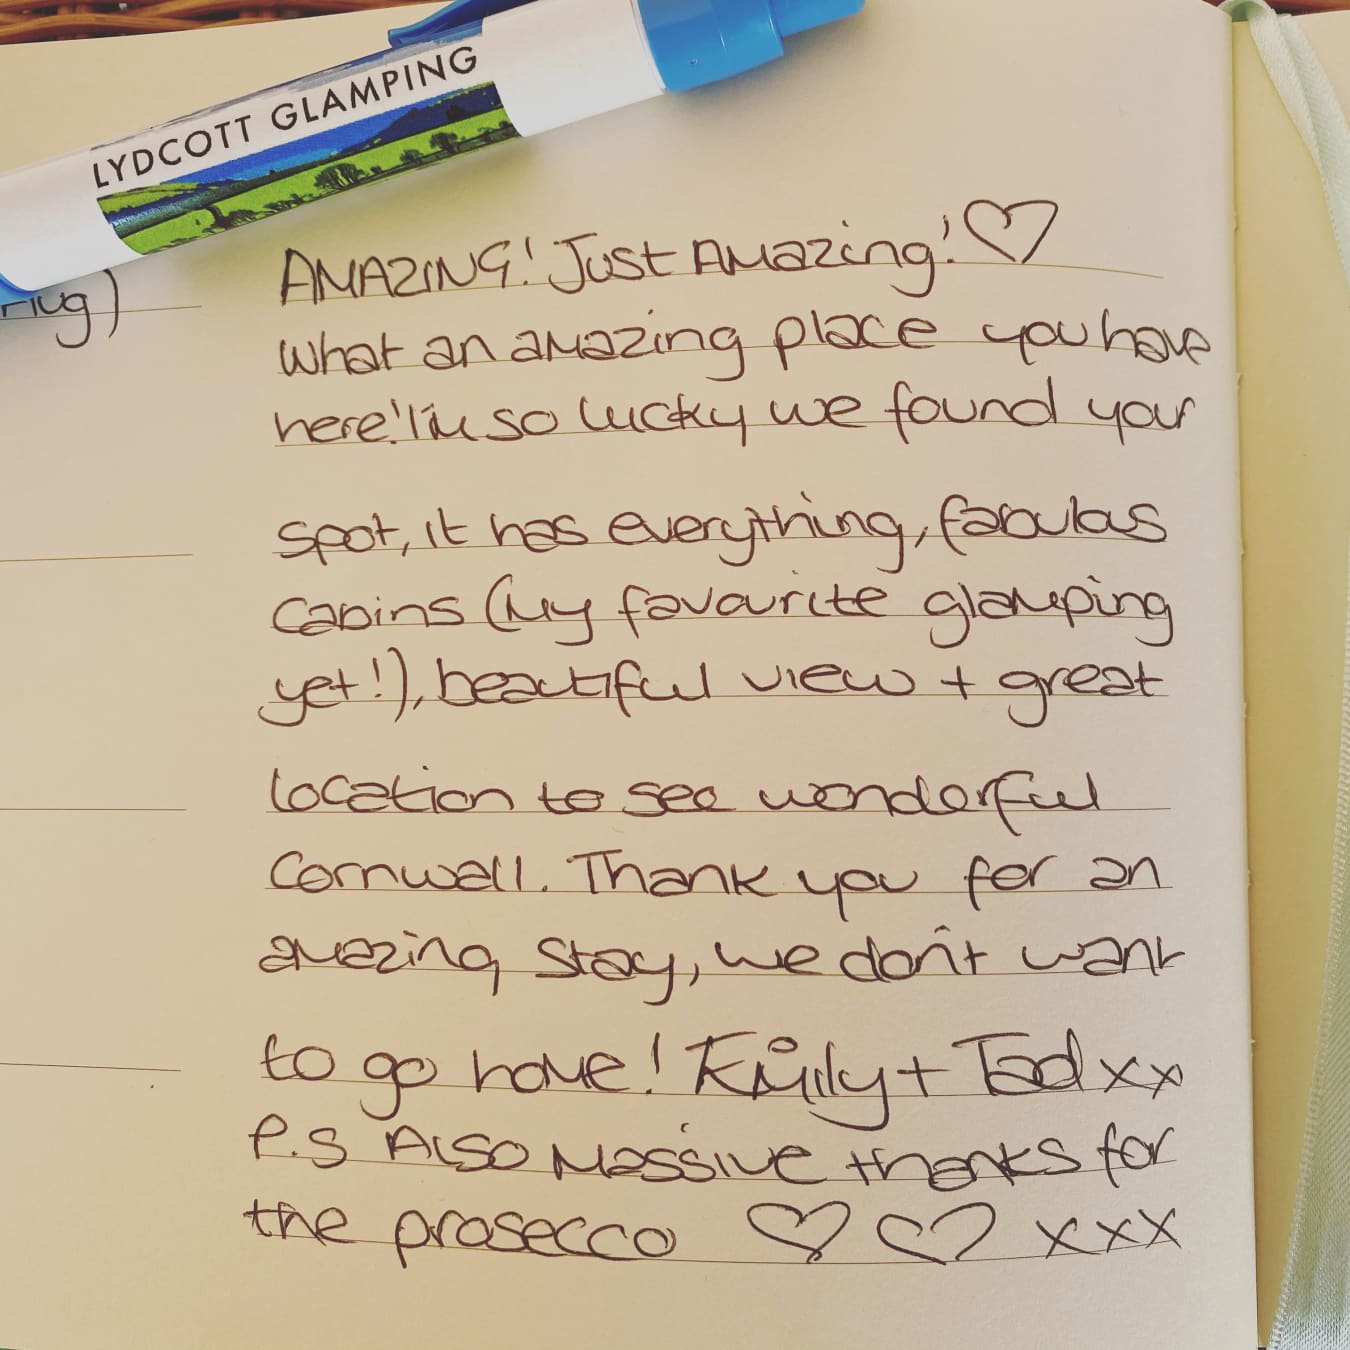 LYDCOTT GLAMPING
AMAZING! Just Amazing! ♡
What an amazing place you have
here! I'm so lucky we found your
spot, it has everything, fabulas
Cabins (my favourite glamping
yet!), beautiful view + great
location to see wonderful
Cornwall. Thank you for an
amazing stay, we don't want
to go home! Emily + Tad xx
P.S Also Massive thanks for
the prosecco ♡ ♡ xxx